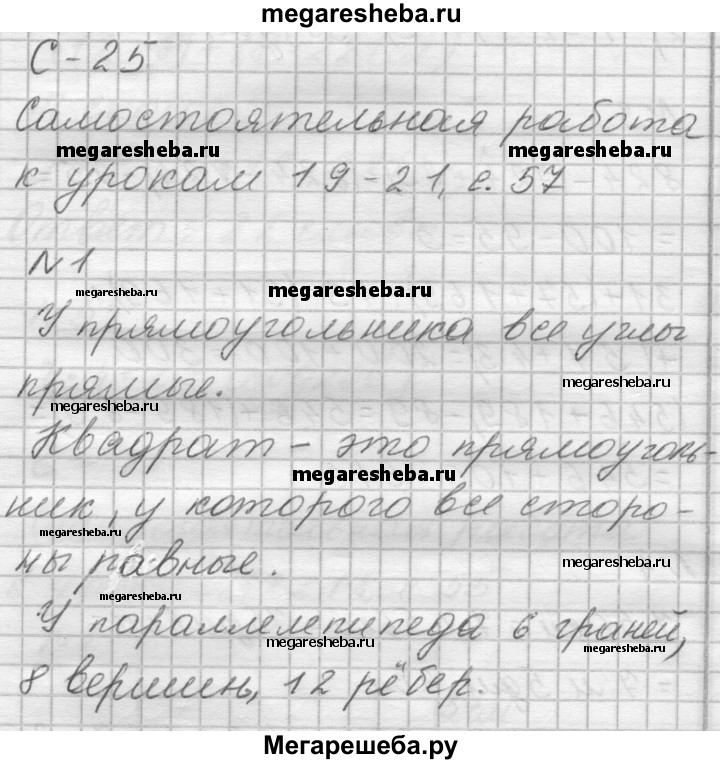 megaresheba.ru
С-25
Самостоятельная работа
megaresheba.ru megaresheba.ru
к урокам 19-21, с. 57
N1
megaresheba.ru megaresheba.ru
У прямоугольника все углы
прямые.
megaresheba.ru
megaresheba.ru
Квадрат - это прямоуголь-
megaresheba.ru
ник, у которого все сторо-
megaresheba.ru
ны равные.
megaresheba.ru
megaresheba.ru
У параллелепипеда 6 граней,
megaresheba.ru megaresheba.ru
8 вершин, 12 рёбер.
Мегарешеба.ру